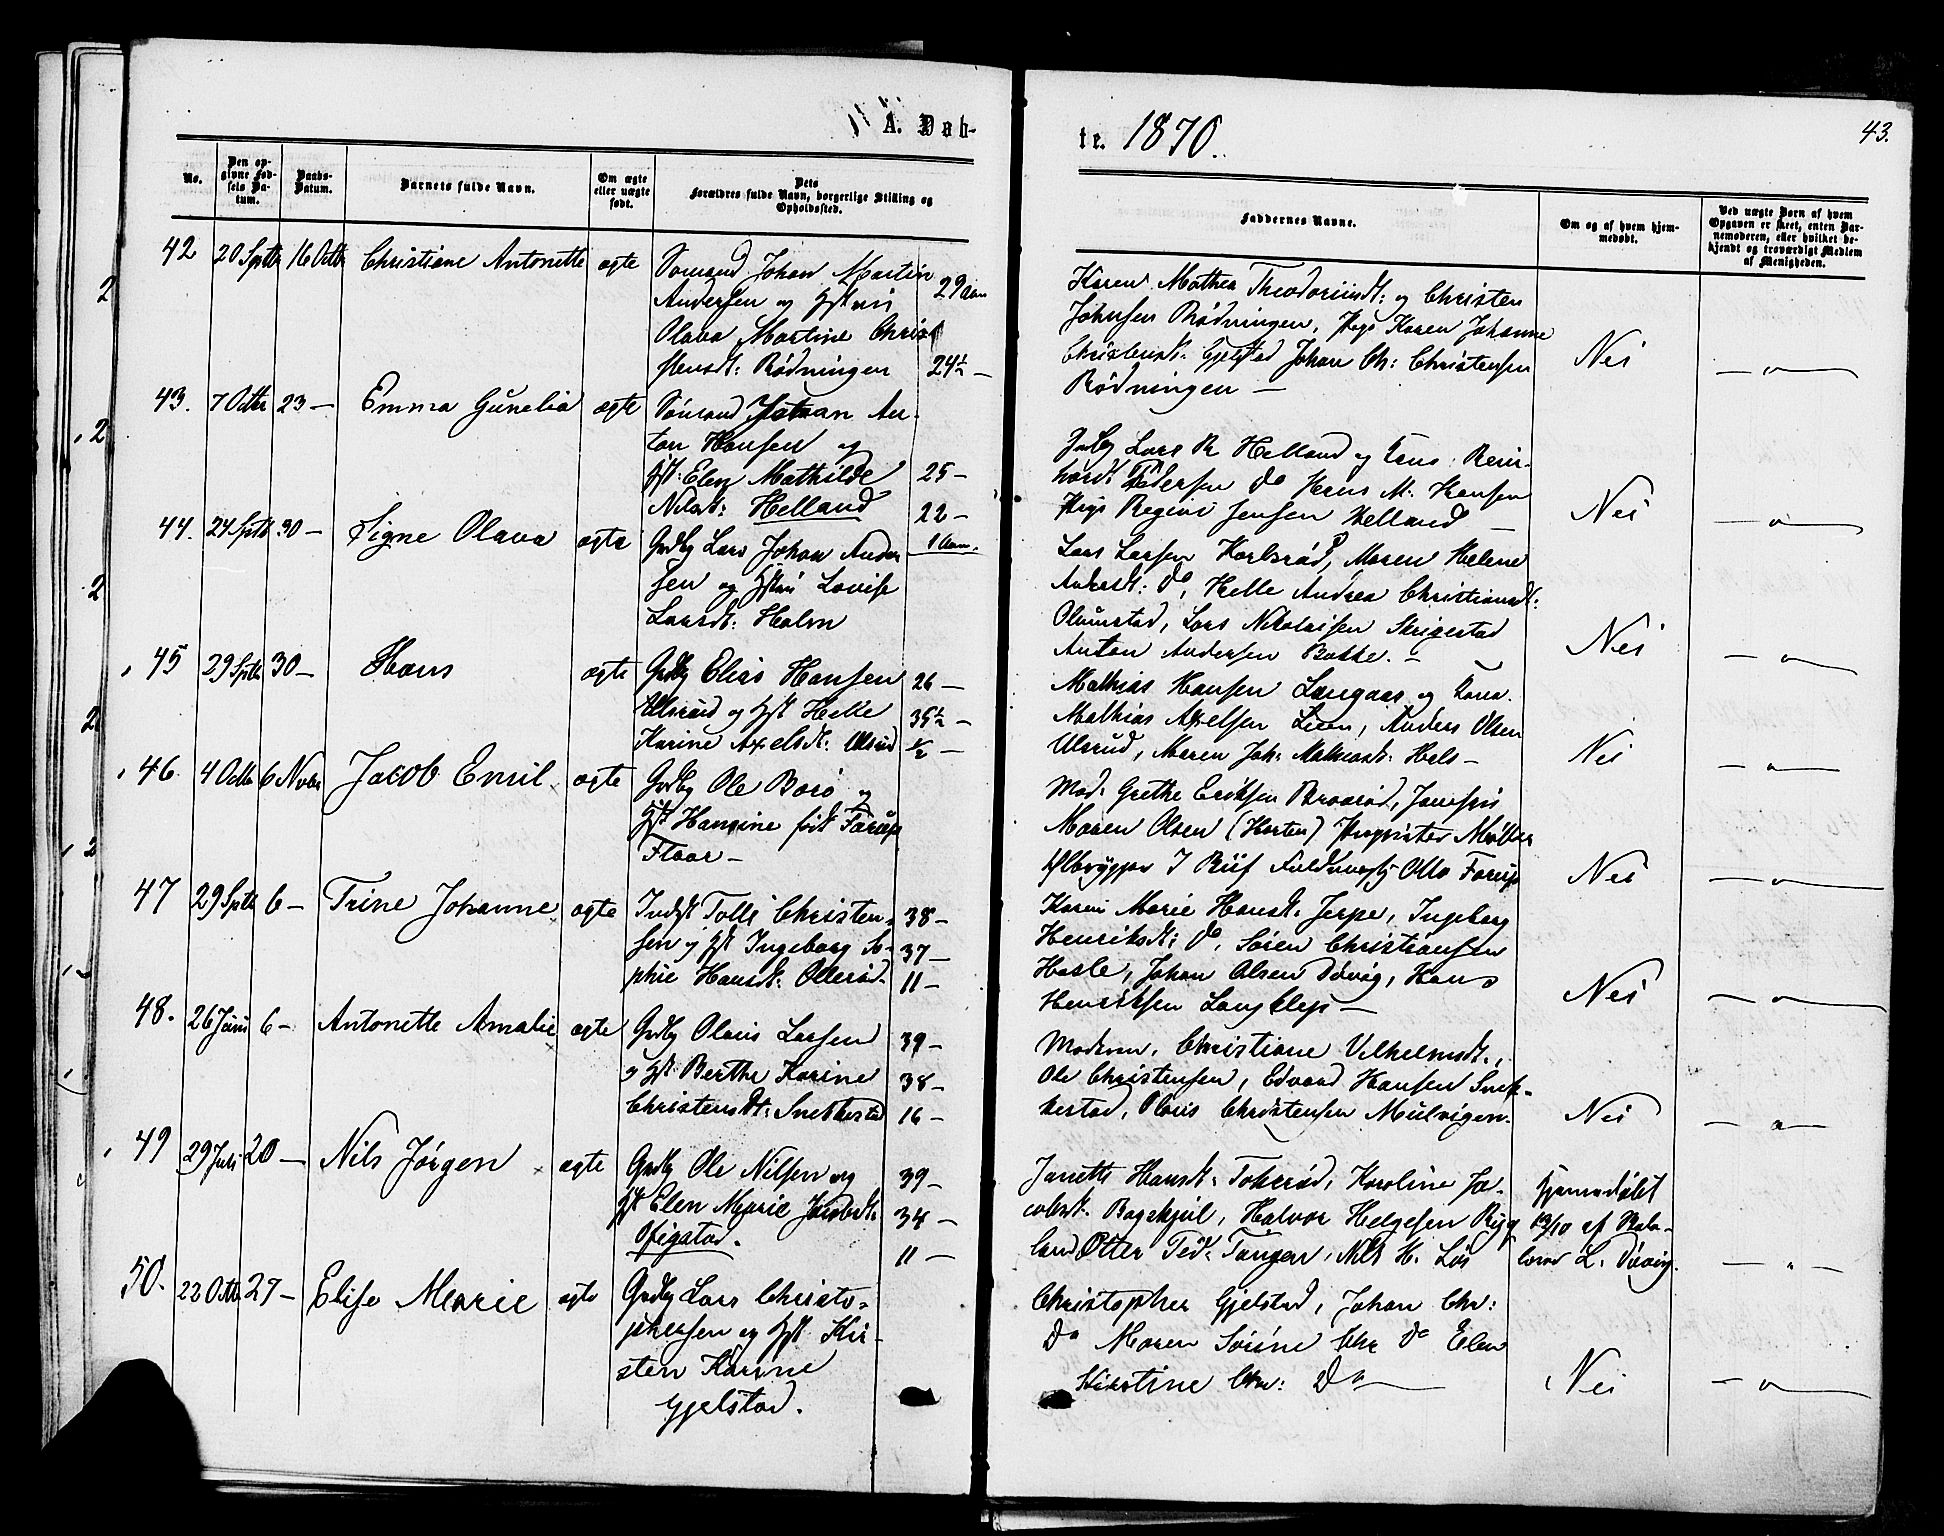 A. Døb-
te. 1870.
43.
No.
Den opgivne Fødsels Datum.
Daabs-Datum.
Barnets fulde Navn.
Om ægte eller uægte født.
Dets Forældres fulde Navn, borgerlige Stilling og Opholdssted.
Faddernes Navne.
Om og af hvem hjemmedøbt.
Ved uægte Børn af hvem Opgaven er skeet, enten Barnemoderen, eller hvilket bekjendt og troværdigt Medlem af Menigheden.
42 20 Septb 16 Octb Christiane Antonette ægte
Sømand Johan Martin
Andersen og
29 Aar
Olava Martine Chris
tensdt: Rødningen 24½ —
Karen Mathea og Christen
Johnsen Rødningen, Karen Johanne
Christensdt. Gjelstad Johan Ch: Christensen
Rødningen —
Nei
43. 7 Octbr 23 — Emma Gunelia ægte
Sømand Johan An-
ton Hansen og
Elen Mathilde 25 —
Nilsdt: Helland 22 —
1 Aar.
Lars R Helland og
Pedersen Do Hans M. Hansen
Jensen Helland —
Nei
44. 24 Septb 30 — Signe Olava ægte
Gdbg Lars Johan Ander
sen og Lovise
Larsdt: Holm
Lars Larsen Karlsrød, Maren Helene
Do, Helle Andrea Christiansdt:
Olumstad, Lars Nikolaisen Skrigestad
Anton Andersen Bakke. —
Nei
45 29 Septb 30 — Hans ægte
Gdbg Elias Hansen 26 —
Ulsrud og Helle 35½ —
Karine Axelsdt: Ulsrud ½ —
Mathias Hansen Langaas og
Mathias Axelsen Lien, Anders Olsen
Ulsrud, Maren Joh: Mathiasdt:
Nei
46. 4 Octb 6 Novbr Jacob Emil ægte
Gdbg Ole Borø og
Hansine født Farup
Flaar —
Mad. Grethe Eriksen Broarød,
Maren Olsen (Horten) Proprietær
Otto Farup
Nei
47 29 Septb 6 — Trine Johanne ægte
Indst Tolle Christen- 38 —
sen og Ingeborg So- 37 —
phie Hansdt: Ollerød 11 —
Karen Marie Hansdt. Jerpe, Ingeborg
Henriksdt: Do, Søren Christiansen
Hasle, Johan Olsen Døvig, Hans
Henriksen Langklep —
Nei
48. 26 Juni 6 — Antonette Amalie ægte
Gdbg Olaus Larsen 39 —
og Berthe Karine 38 —
Christensdt: Snekkestad 16 —
Moderen, Christiane Vilhelmsdt.,
Ole Christensen, Edvard Hansen Snek-
kestad, Olaus Christensen Mulvigen.
Nei
49 29 Juli 20 — Nils Jørgen ægte
Gdbg Ole Nilsen og 39 —
Elen Marie Jacobsdt. 34 —
Ofigstad. 11 —
Janette Hansdt. Tokerød, Karoline Ja-
cobsdt. Bagskjul, Halvor Helgesen Ryg
land Otter Tangen, Nils H. Løs
Hjemmedøbt
13/10 af Skole-
lærer L. Døvig.
50. 22 Octb 27 — Elise Marie ægte
Gdbg Lars Christo-
phersen og Kir-
sten Karine
Gjelstad.
Christopher Gjelstad, Johan Chr:
Do Maren Sørine Chr Do Elen
Kirstine Chr: Do —
Nei